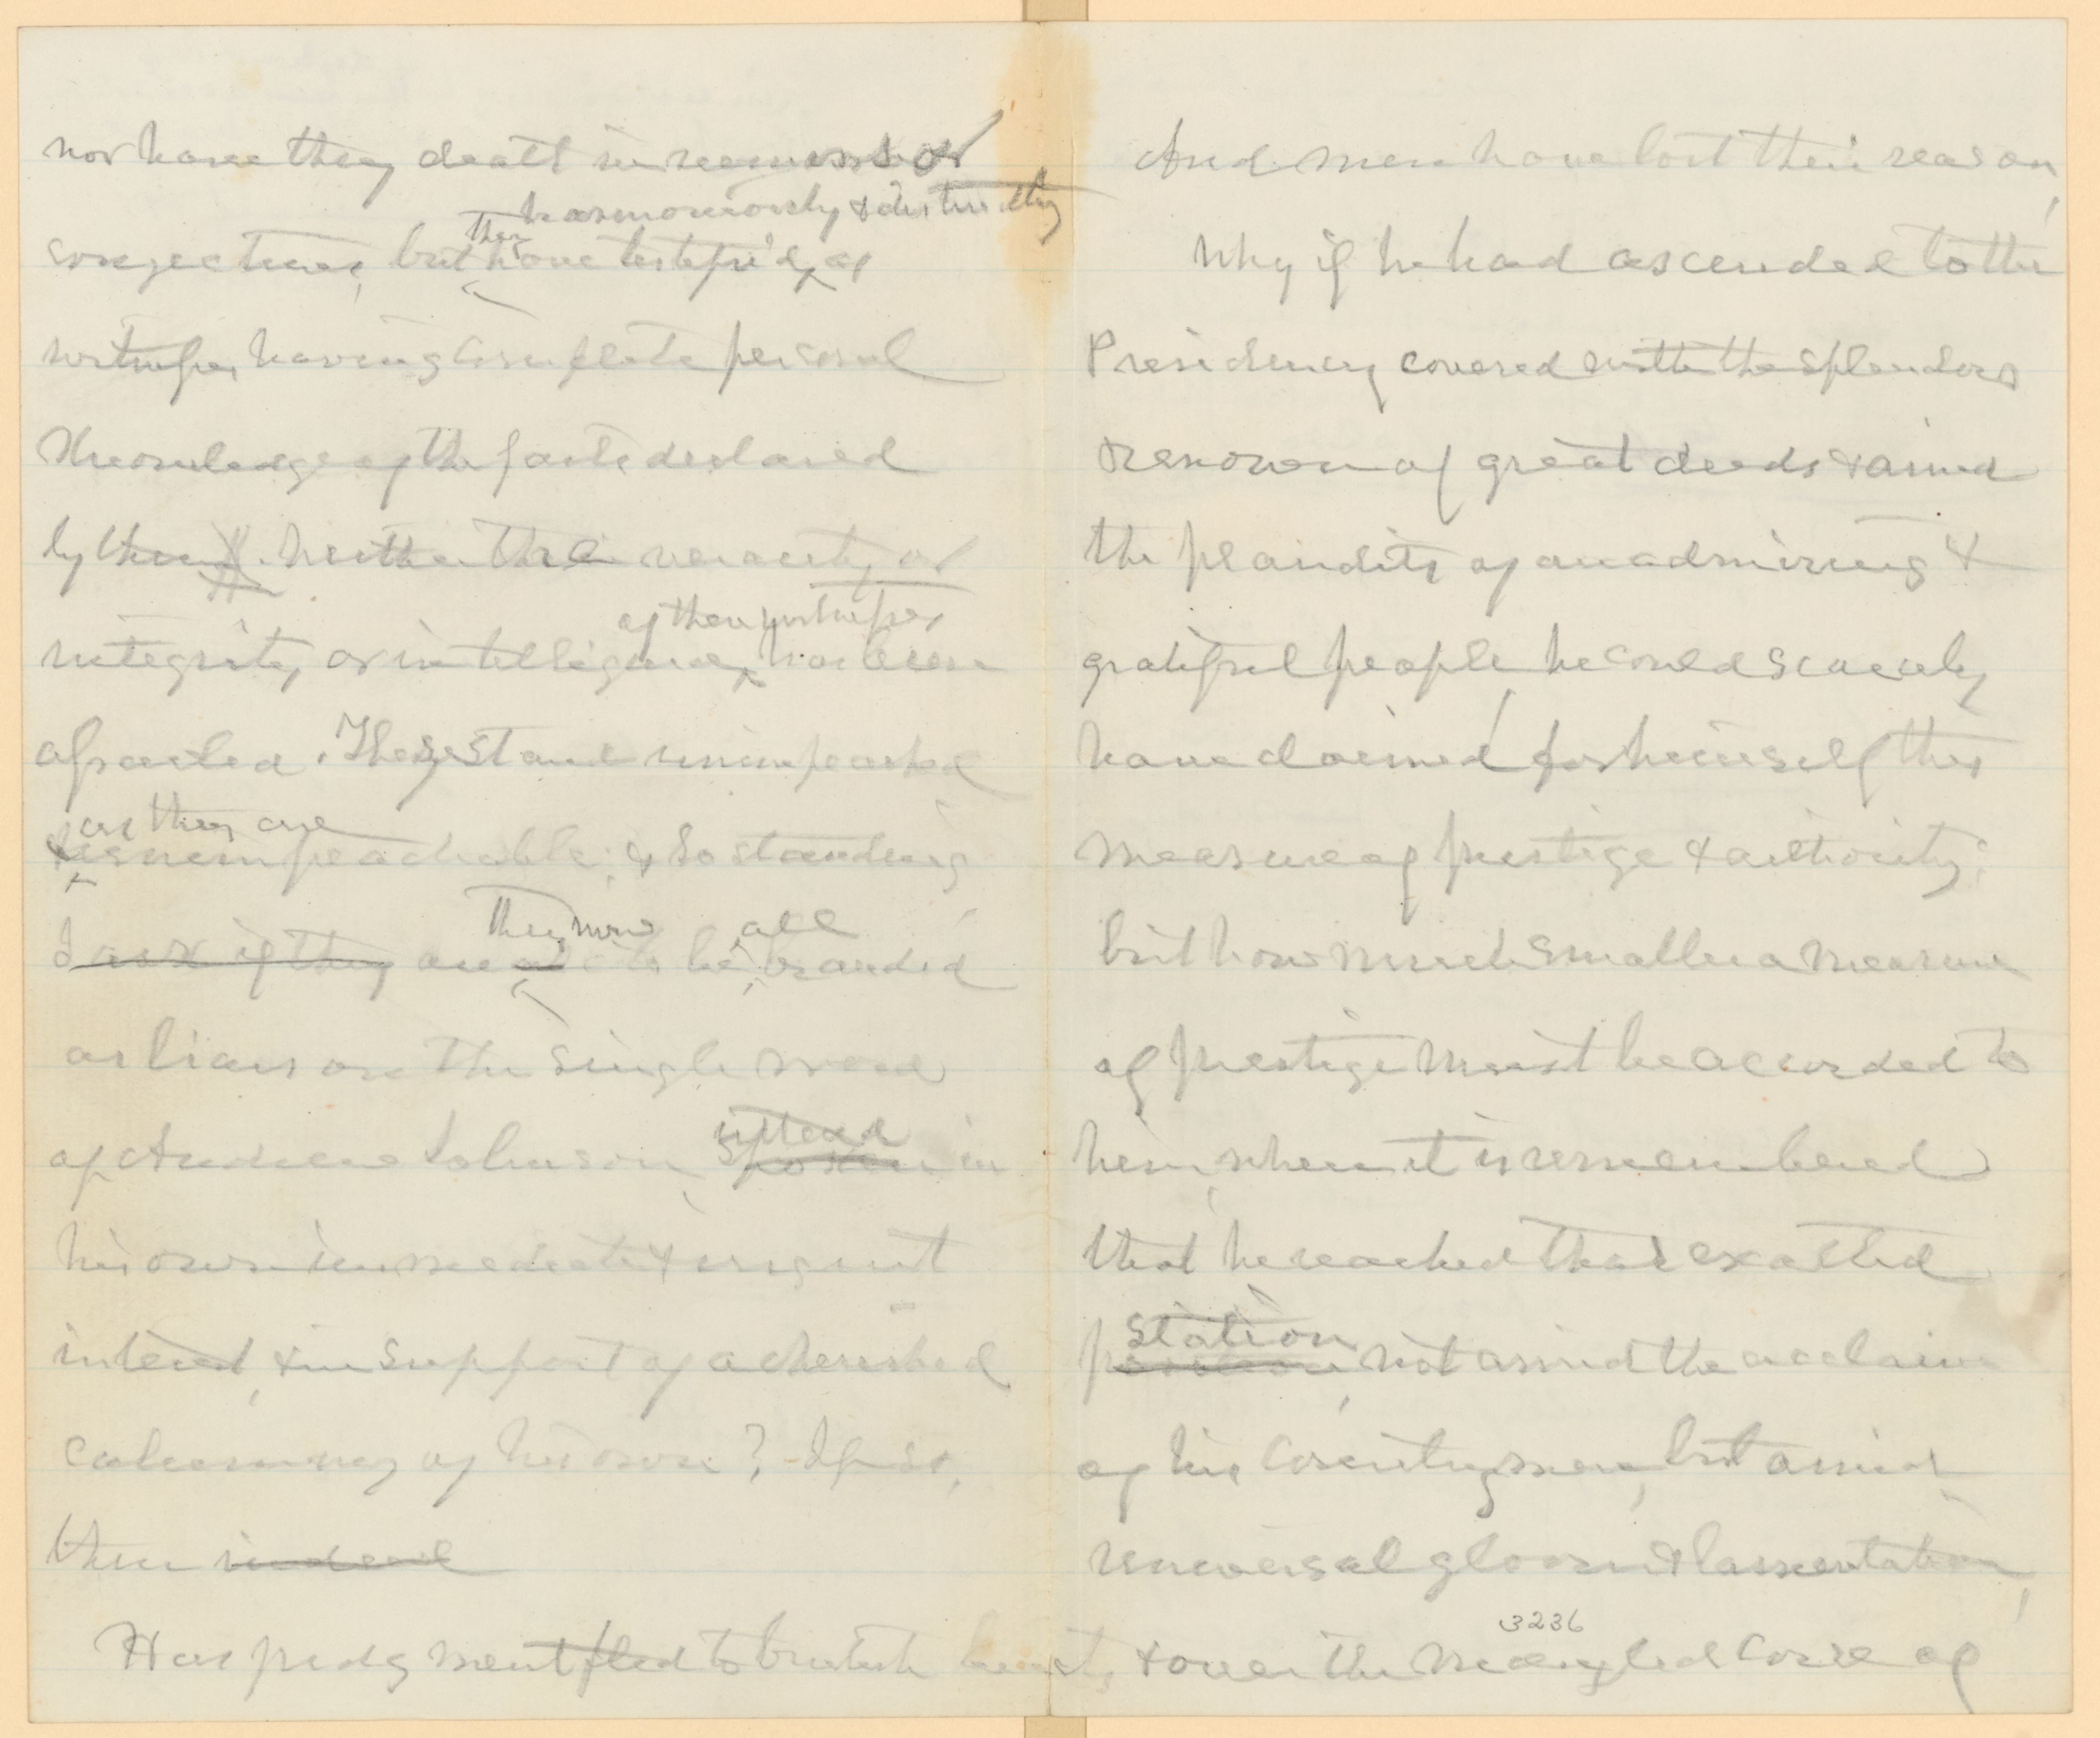 nor have they dealt in rumors or
harmoniously & distinctly
they
conjectures, but have testified, as
witnesses having complete personal
Knowledge of the facts declared
by them. Neither their veracity or
of these witnesses
integrity or intelligence, has been
assailed. They stand unimpeached
as they are
& unimpeachable; & so standing
they now all
I ask if they are to be branded
as liars on the single word
uttered
of Andrew Johnson, spoken in
his own immediate & urgent
interest, & in support of a cherished
calumny of his own? If so,
then indeed
Has judgment fled to brutish beasts,
And men have lost their reason,
Why if he had ascended to the
Presidency covered with the splendors
& renown of great deeds & amid
the plaudits of an admiring &
grateful people, he could scarcely
have claimed for himself this
measure of prestige & authority;
but how much smaller a measure
of prestige must be accorded to
him, when it is remembered
that he reached that exalted
station
position, not amid the acclaim
of his countrymen, but amid
universal gloom & lamentation,
3236
& over the mangled corse of